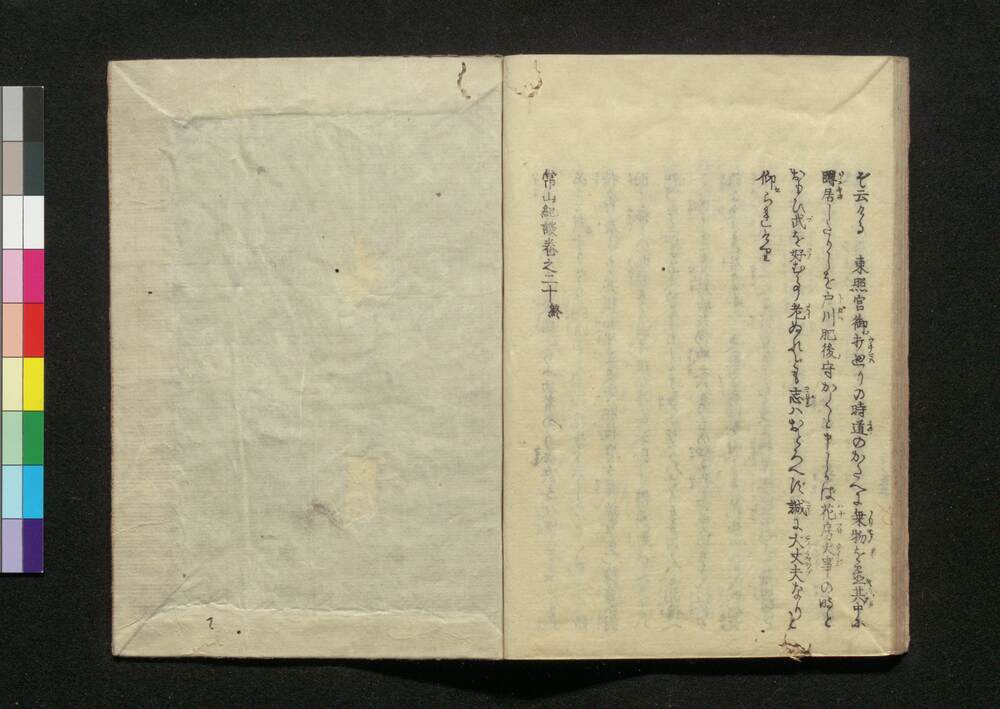 と云ける 東照宮御打廻りの時道のかたへに乗物を置其中に
蹲居したりしを戸川肥後守かくと申しゝかば花房大事の時と
おもひ武を好むゆゑ老ぬれども志ハおとろへず誠に大丈夫なりと
仰られけり
常山紀談巻之二十終